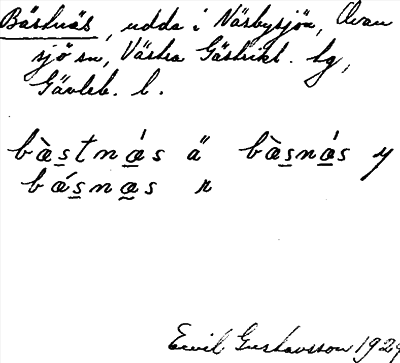 Bästnäs, udde i Näsbysjön, Ovan
sjö sn, Västra Gästrikl. tg,
Gävleb. l.
bàs̲tná̲s ä bàs̲ná̲s y
bás̲na̲s r
Emil Gustavsson 1929